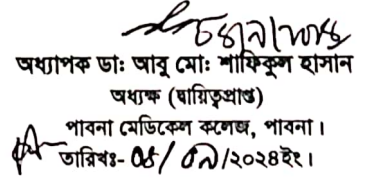 অধ্যাপক ডাঃ আবু মোঃ শাফিকুল হাসান
অধ্যক্ষ (দ্বায়িত্বপ্রাপ্ত)
পাবনা মেডিকেল কলেজ, পাবনা।
তারিখঃ- /২০২৪ইং।